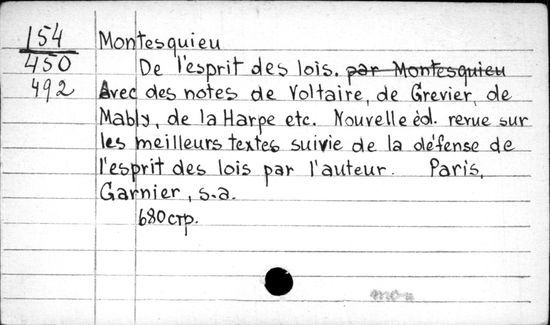 154 Montesquieu
450 De l'esprit des lois. par Montesquieu
492 Avec des notes de Voltaire, de Grevier, de
Mably, de la Harpe etc. Nouvelle èd. revue sur
les meilleurs textes suivie de la défense de
l'esprit des lois par l'auteur. Paris,
Garnier, s.a.
680 стр.